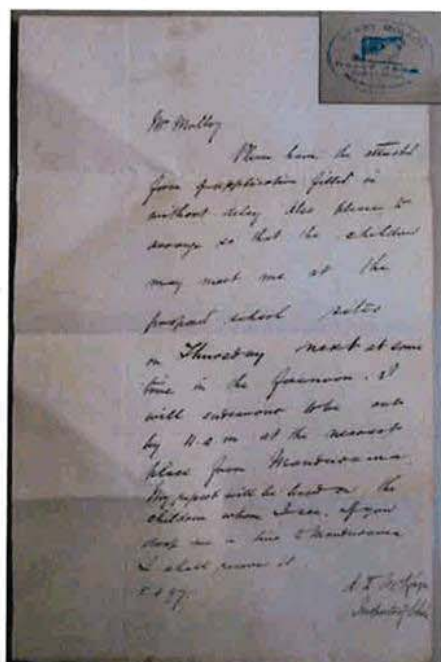 Mr Molloy
Please have the attached
form of application filled in
without delay. Also please to
arrange so that the children
may meet me at the
proposed school sites
on Thursday next at some
time in the forenoon. I
will endeavour to be out
by 11 a.m at the nearest
place from Mandurama.
My report will be based on the
children whom I see. If you
drop me a line to Mandurama
I shall receive it.
Inspector of